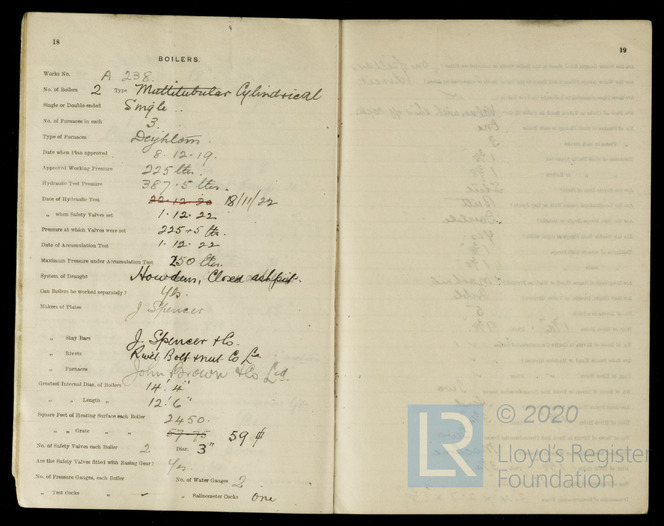 18
BOILERS.
Works No. A 238.
No. of Boilers 2 Type Multitubular Cylindrical
Single or Double-ended Single
No. of Furnaces in each 3.
Type of Furnaces Deighton.
Date when Plan approved 8.12.19.
Approved Working Pressure 225 lbs.
Hydraulic Test Pressure 387.5 lbs.
Date of Hydraulic Test 22.12.20 18/11/22
„ when Safety Valves set 1.12.22
Pressure at which Valves were set 225+5 lbs.
Date of Accumulation Test 1.12.22
Maximum Pressure under Accumulation Test 250 lbs.
System of Draught Howdens, Closed ashpit.
Can Boilers be worked separately? Yes.
Makers of Plates J Spencer
„ Stay Bars J. Spencer & Co.
„ Rivets Rivet Bolt & nut Co Ld
„ Furnaces John Brown & Co Ltd.
Greatest Internal Diam. of Boilers 14' 4"
„ „ Length „ 12' 6"
Square Feet of Heating Surface each Boiler 2450.
„ „ Grate „ „ 57.75 59 ф
No. of Safety Valves each Boiler 2 Diar. 3"
Are the Safety Valves fitted with Easing Gear? Yes.
No. of Pressure Gauges, each Boiler No. of Water Gauges 2.
„ Test Cocks „ ✓ „ Salinometer Cocks One
19
LR © 2020
Lloyd's Register
Foundation